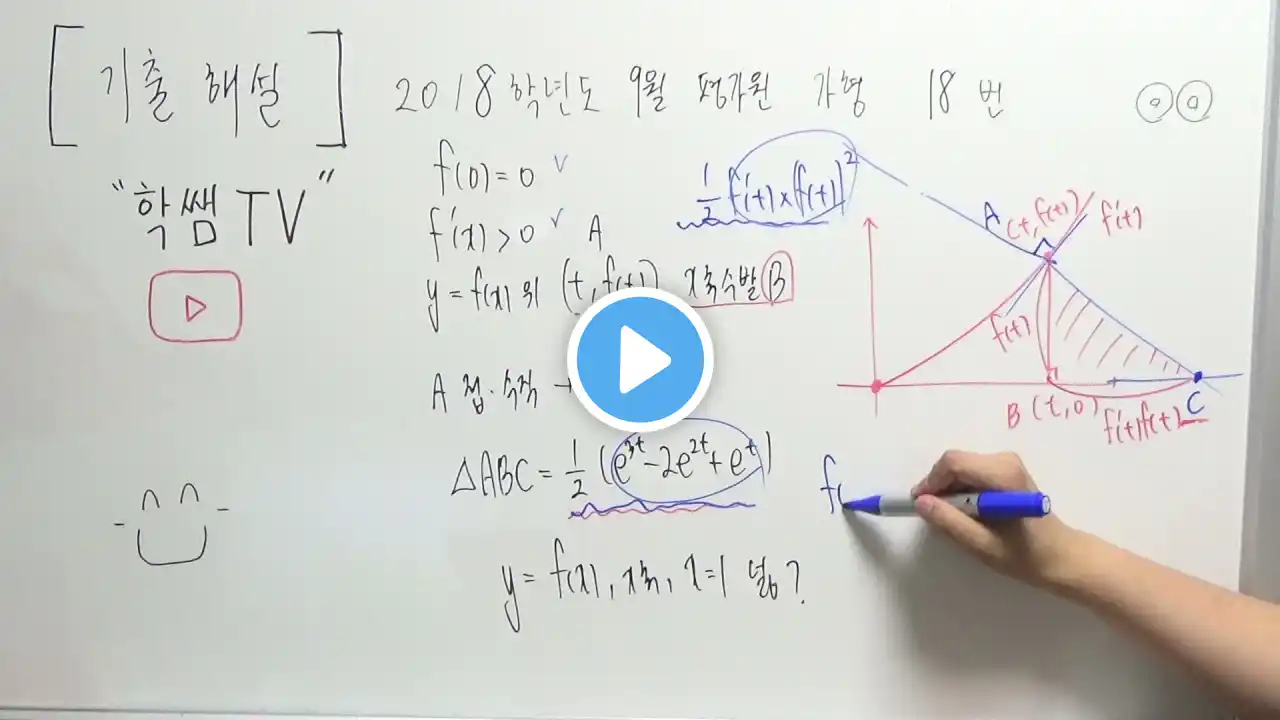 [ 기출 해설 ] 2018학년도 9월 평가원 가형 18번
"학쌤TV"
f(0)=0 ✓
f'(x)>0 ✓ A
y=f(x) 위 (t, f(t)) x축 수발 B
A 접. 수직 →
△ABC = 1/2 (e^3t - 2e^2t + e^t)
y=f(x), x축, x=1 넓이?
1/2 f'(t)×{f(t)}^2
A (t, f(t))
f'(t)
f(t)
B (t, 0)
f'(t)f(t)
C
f(